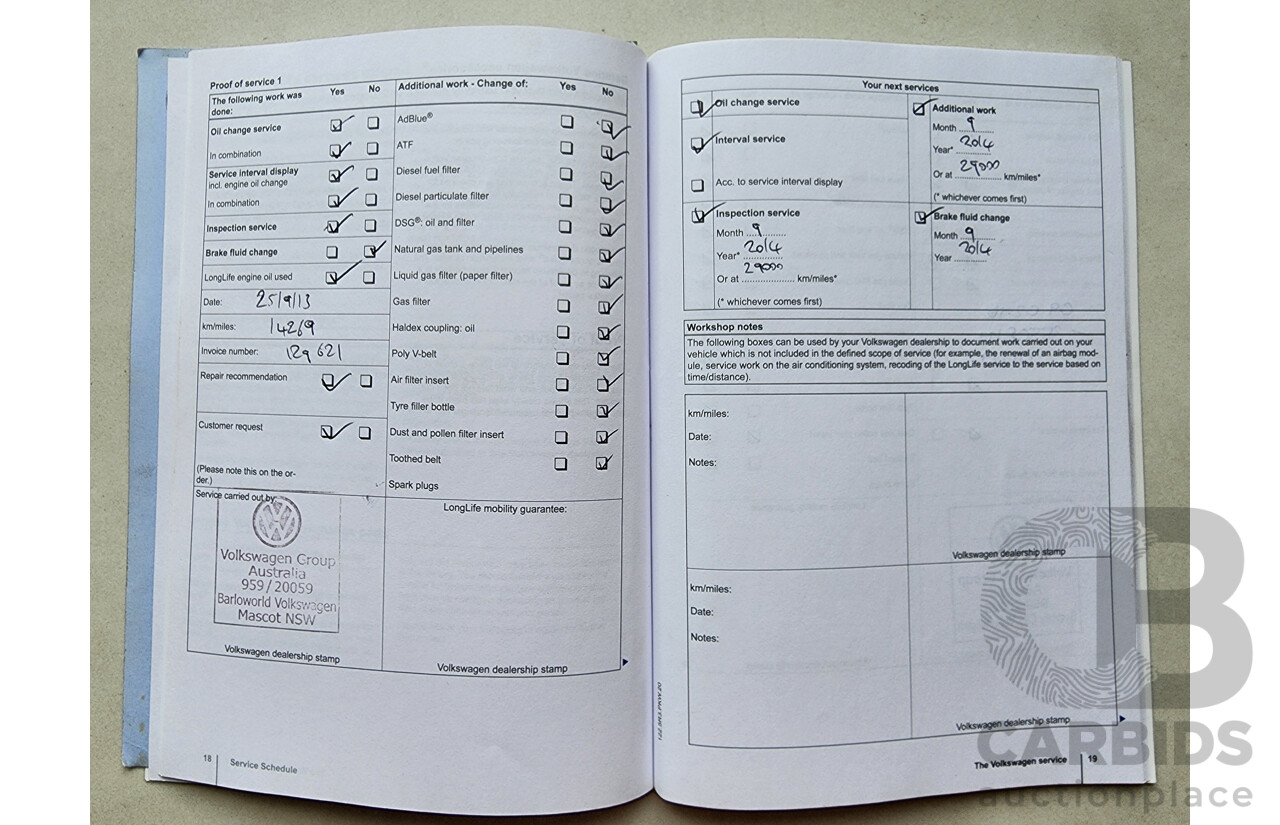 Proof of service 1
The following work was done: Yes No
Oil change service
In combination
Service interval display
incl. engine oil change
In combination
Inspection service
Brake fluid change
LongLife engine oil used
Date: 25/9/13
km/miles: 14269
Invoice number: 129621
Repair recommendation
Customer request
(Please note this on the or-
der.)
Additional work - Change of: Yes No
AdBlue®
ATF
Diesel fuel filter
Diesel particulate filter
DSG®: oil and filter
Natural gas tank and pipelines
Liquid gas filter (paper filter)
Gas filter
Haldex coupling: oil
Poly V-belt
Air filter insert
Tyre filler bottle
Dust and pollen filter insert
Toothed belt
Spark plugs
Service carried out by:
Volkswagen Group
Australia
959/20059
Barloworld Volkswagen
Mascot NSW
Volkswagen dealership stamp
LongLife mobility guarantee:
Volkswagen dealership stamp
18 Service Schedule
Your next services
Oil change service
Interval service
Acc. to service interval display
Additional work
Month 9
Year* 2014
Or at 29000 km/miles*
(* whichever comes first)
Inspection service
Month 9
Year* 2014
29000
Or at km/miles*
(* whichever comes first)
Brake fluid change
Month 9
Year 2014
Workshop notes
The following boxes can be used by your Volkswagen dealership to document work carried out on your
vehicle which is not included in the defined scope of service (for example, the renewal of an airbag mod-
ule, service work on the air conditioning system, recoding of the LongLife service to the service based on
time/distance).
km/miles:
Date:
Notes:
Volkswagen dealership stamp
km/miles:
Date:
Notes:
Volkswagen dealership stamp
The Volkswagen service 19
CARBIDS
auctionplace